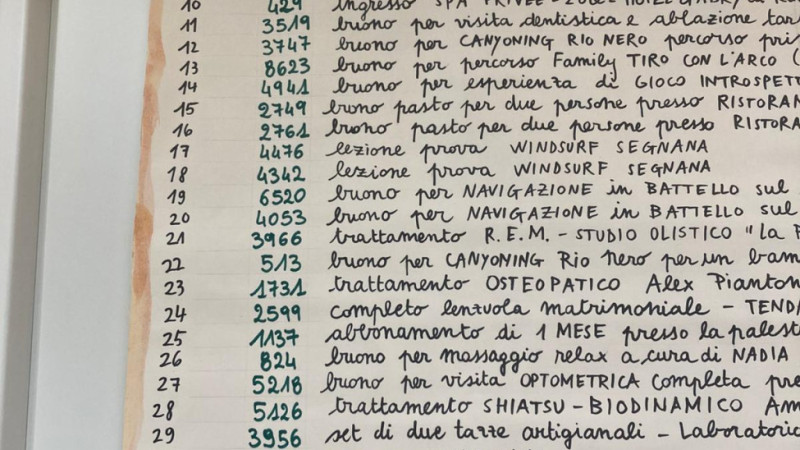 10 429 ingresso SPA PRIVÈE
11 3519 buono per visita dentistica e ablazione
12 3747 buono per CANYONING RIO NERO percorso
13 8623 buono per percorso Family TIRO CON L'ARCO (
14 4941 buono per esperienza di GIOCO
15 2749 buono pasto per due persone presso
16 2761 buono pasto per due persone presso
17 4476 lezione prova WINDSURF SEGNANA
18 4342 lezione prova WINDSURF SEGNANA
19 6520 buono per NAVIGAZIONE in BATTELLO sul
20 4053 buono per NAVIGAZIONE in BATTELLO sul
21 3966 trattamento R.E.M. - STUDIO OLISTICO "La
22 513 buono per CANYONING Rio Nero per un
23 1731 trattamento OSTEOPATICO Alex
24 2599 completo lenzuola matrimoniale -
25 1137 abbonamento di 1 MESE presso la
26 824 buono per massaggio relax a cura di NADIA
27 5218 buono per visita OPTOMETRICA completa
28 5126 trattamento SHIATSU - BIODINAMICO
29 3956 set di due tazze artigianali -